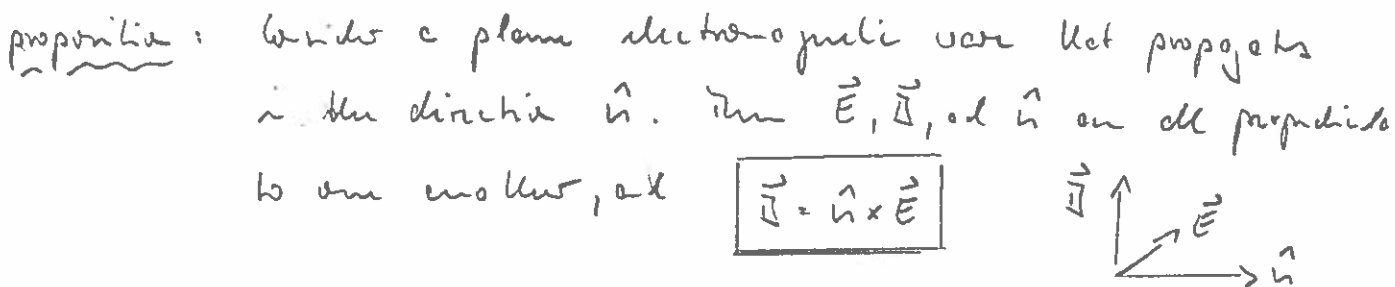 proposition: Consider a plane electromagnetic wave that propagates
in the direction n̂. Then E⃗, B⃗, and n̂ are all perpendicular
to one another, and B⃗ = n̂ × E⃗
B⃗ E⃗ n̂